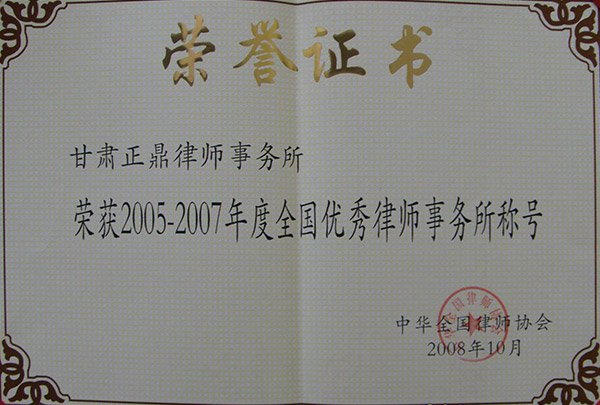 荣誉证书
甘肃正鼎律师事务所
荣获2005-2007年度全国优秀律师事务所称号
中华全国律师协会
2008年10月